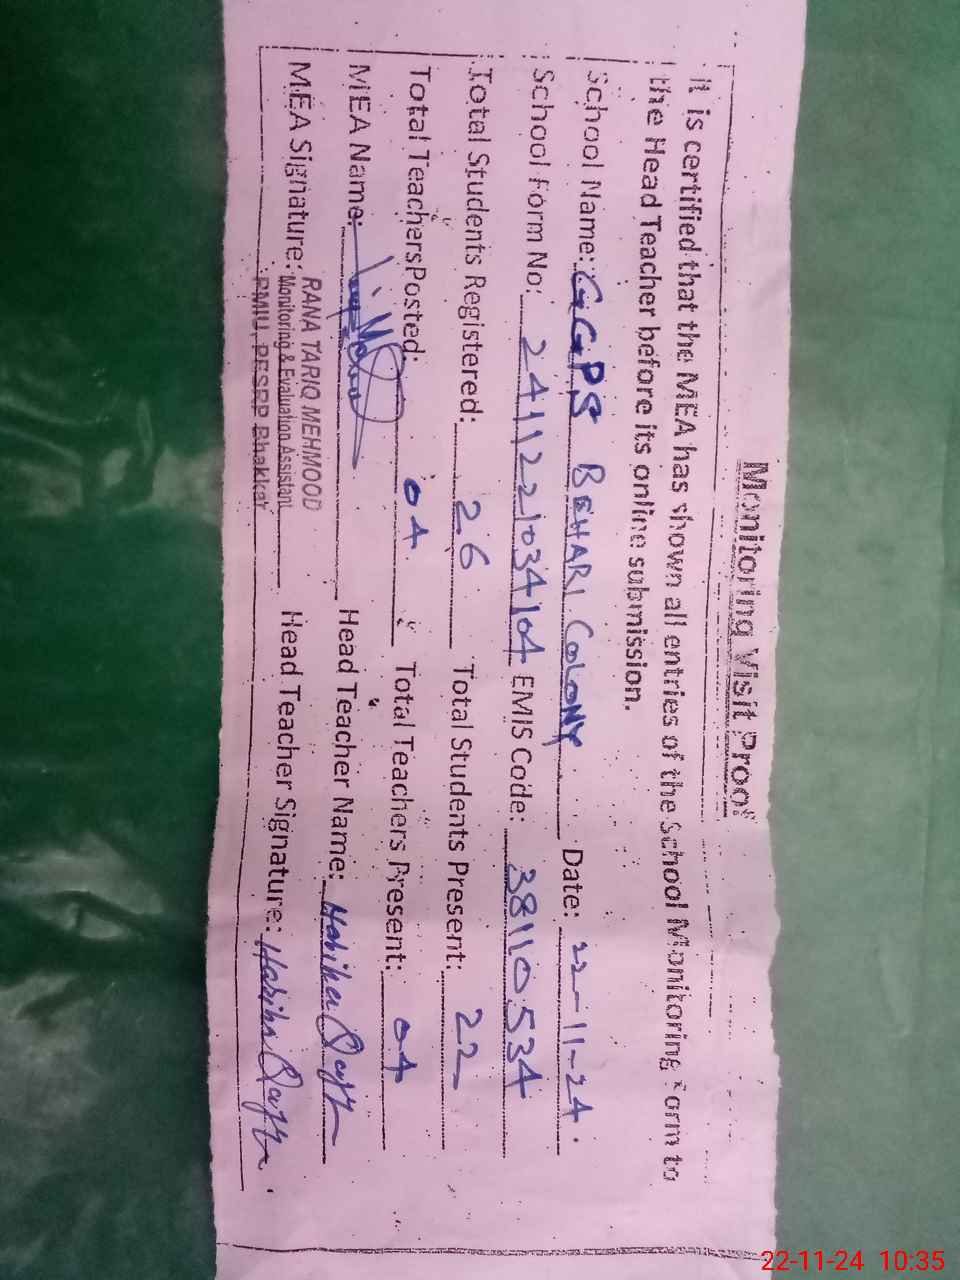 Monitoring Visit Proof
it is certified that the MEA has shown all entries of the School Monitoring Form to
the Head Teacher before its online submission.
School Name: GGPS BEHARI COLONY Date: 22-11-24.
School Form No: 2411221034104 EMIS Code: 38110534
Total Students Registered: 26 Total Students Present: 22
Total Teachers Posted: 04 Total Teachers Present: 04
MEA Name: Head Teacher Name: Habiba
MEA Signature: Head Teacher Signature: Habiba
RANA TARIQ MEHMOOD
Monitoring & Evaluation Assistant
PMIU, PESRP Bhakkar
22-11-24 10:35